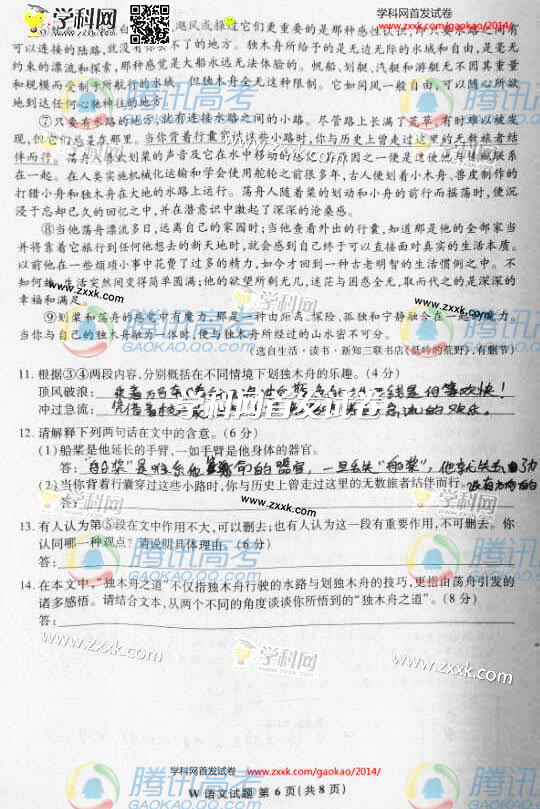 学科网首发试卷
www.zxxk.com/gaokao/2014/
可以连接的陆路,就没有你去不了的地方。独木舟所给予的是无边无际的水域和自由,是毫无
约束的漂流和探索,那种感觉是大船永远无法体验的。帆船、划艇、汽艇和游艇无不因其重量
和规模而受制于所航行的水域。但独木舟全无这种限制。它如同风一般自由,可以随心所欲
地到达任何心驰神往的地方。
⑦只要有水路的地方,就有连接水路之间的小路。尽管路上长满了荒草,有时难以被发
现,但它们总是在那里。当你背着行囊穿过这些小路时,你与历史上曾走过这里的无数旅者结
伴而行。荡舟人喜欢划桨的声音及它在水中移动的感觉,原因之一便是这使他与传统联系
在一起。在人类实施机械化运输和学会使用舵轮之前很多年,古人便划着小木舟、兽皮制作的
打猎小舟和独木舟在大地的水路上运行。荡舟人随着桨的划动和小舟的前行而摇荡时,便沉
浸于忘却已久的回忆之中,并在潜意识中激起了深深的沧桑感。
⑧当他荡舟漂流多日,远离自己的家园时;当他查看外出的行囊,知道那是他的全部家当
并将靠着它旅行到任何他想去的新天地时,就会感到自己终于可以直接面对真实的生活本质。
以前他在一些烦琐小事中花费了过多的精力,如今才回到一种古老明智的生活惯例之中。不
生活突然间变得简单圆满;他的欲望所剩无几,迷茫与困惑全无,取而代之的是深深的
幸福和满足。
⑨划桨和荡舟的感觉中有魔力,那是一种由距离、探险、孤独和宁静融合在一起的魔力。
当你与自己的独木舟融为一体时,便与独木舟所经过的山水密不可分。
(选自生活·读书·新知三联书店《低吟的荒野》,有删节)
11. 根据③④两段内容,分别概括在不同情境下划独木舟的乐趣。(4 分)
顶风破浪:
冲过急流:
12. 请解释下列两句话在文中的含意。(6 分)
(1)船桨是他延长的手臂,一如手臂是他身体的器官。
答:
(2)当你背着行囊穿过这些小路时,你与历史上曾走过这里的无数旅者结伴而行。
答:
13. 有人认为第⑤段在文中作用不大,可以删去;也有人认为这一段有重要作用,不可删去。你
认同哪一种观点?请说明具体理由。(6 分)
答:
14. 在本文中,“独木舟之道”不仅指独木舟行驶的水路与划独木舟的技巧,更指由荡舟引发的
诸多感悟。请结合文本,从两个不同的角度谈谈你所悟到的“独木舟之道”。(8 分)
答:
学科网首发试卷
www.zxxk.com/gaokao/2014/
W 语文试题 第 6 页(共 8 页)